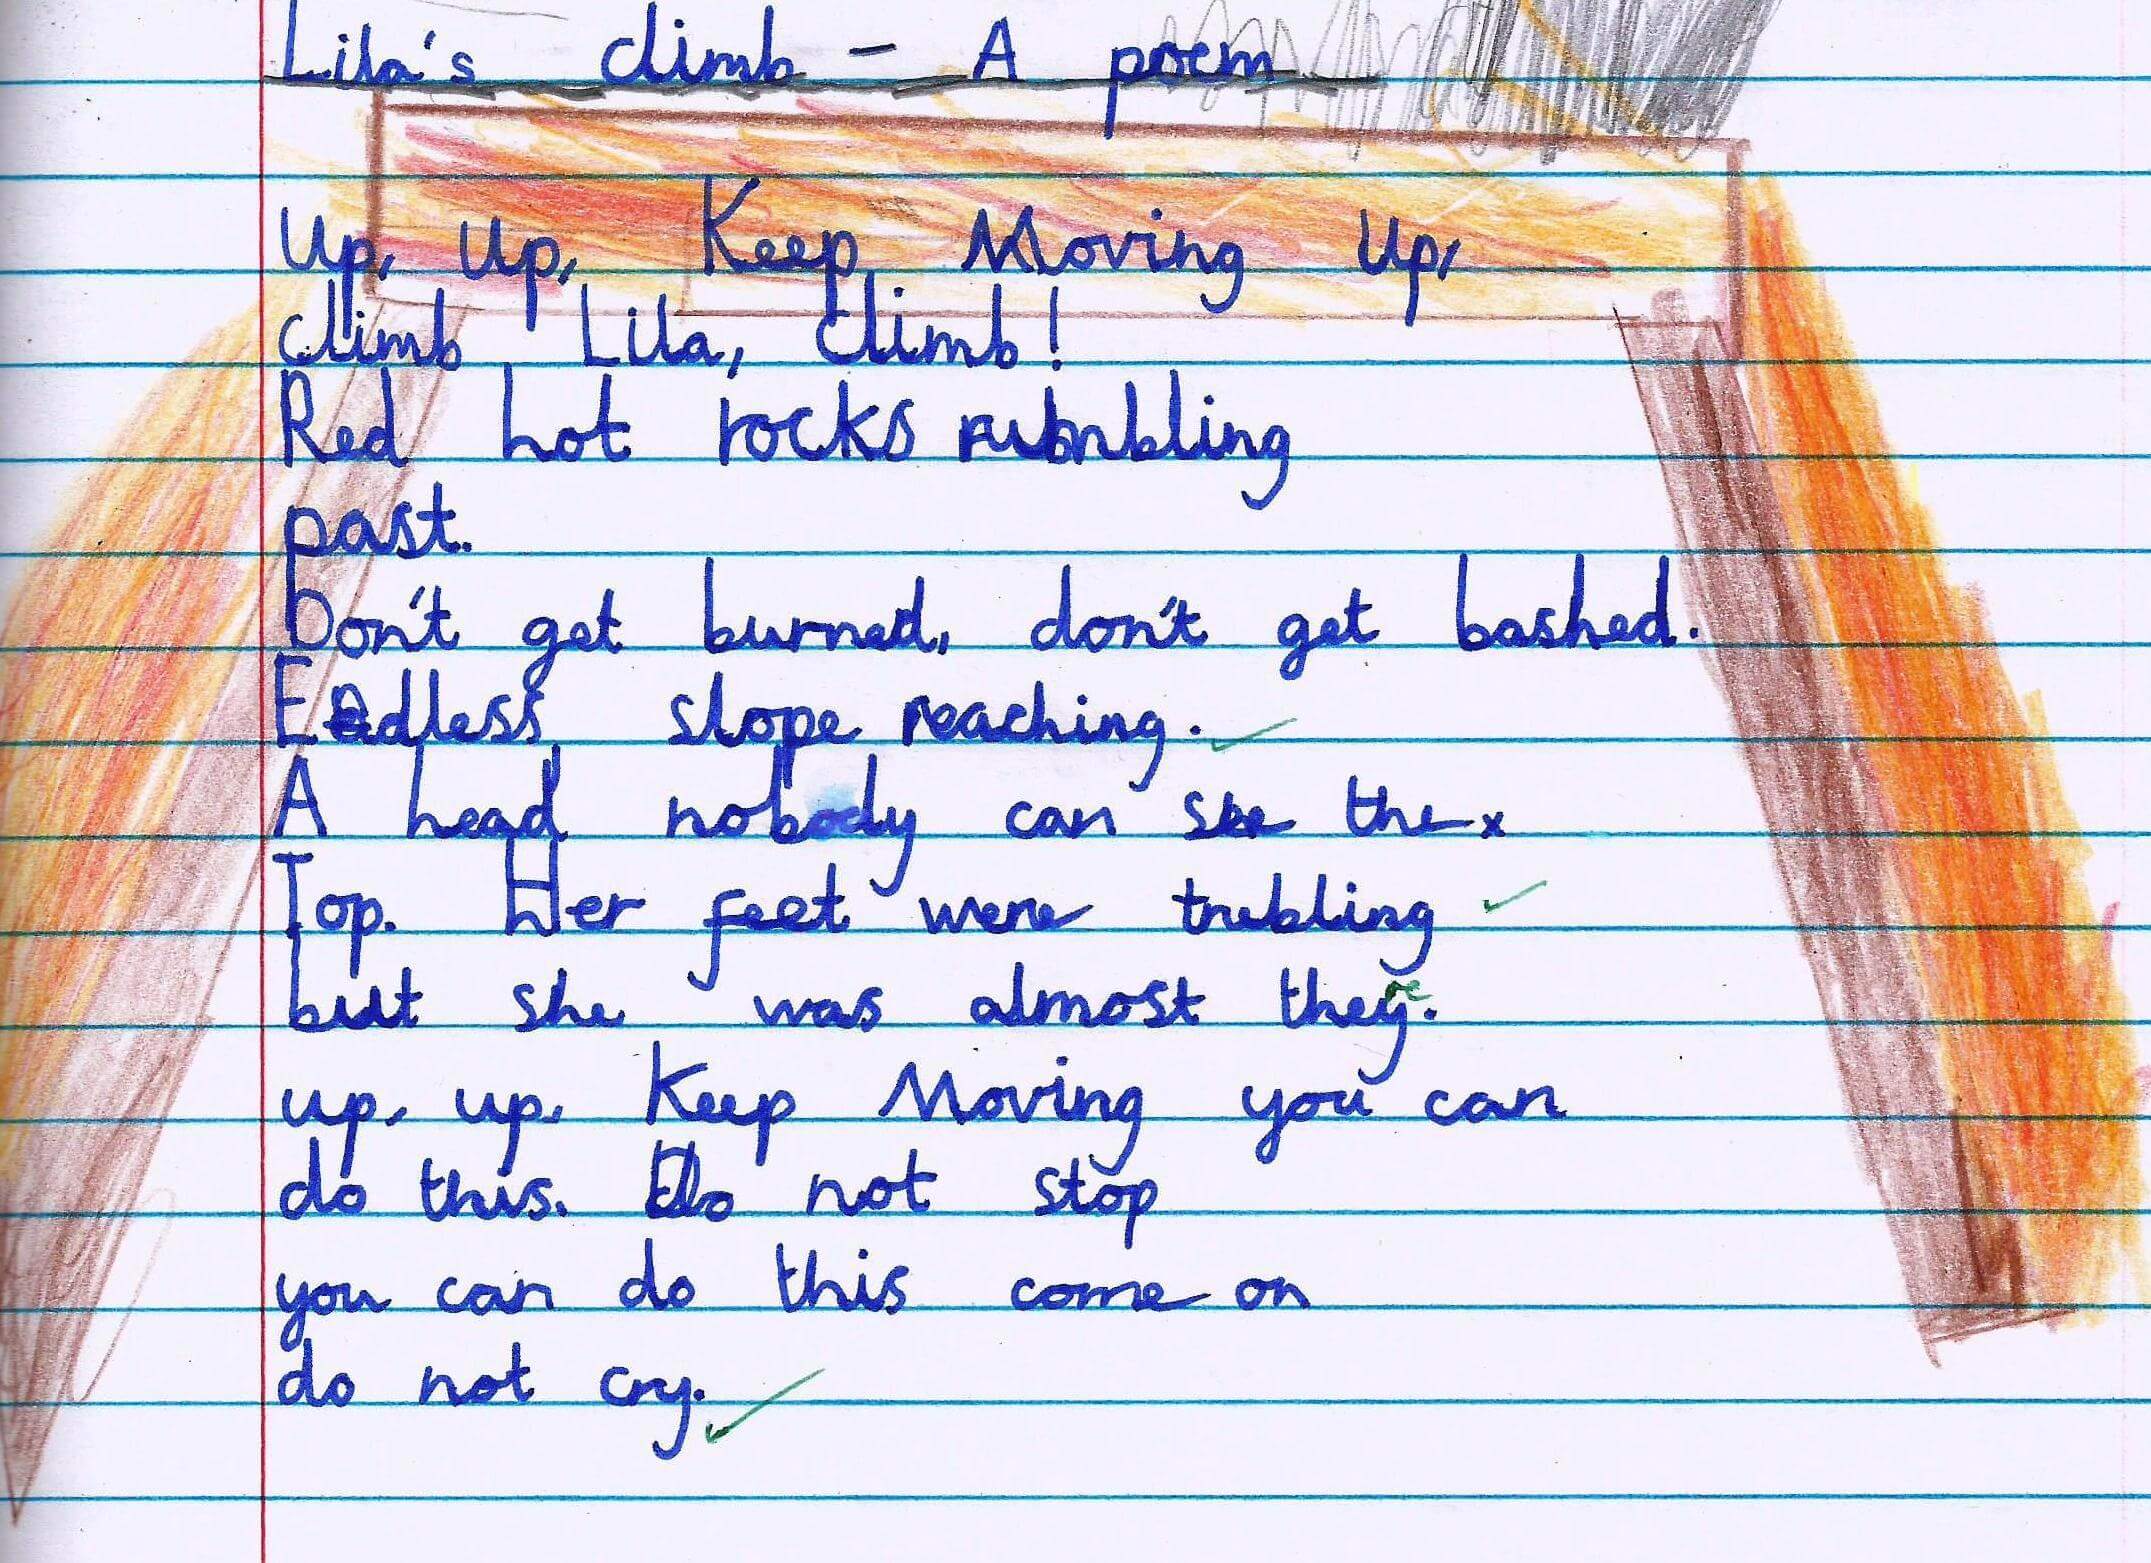 Lila's climb - A poem
Up, Up, Keep Moving Up,
climb Lila, climb!
Red hot rocks rumbling
past.
Don't get burned, don't get bashed.
Endless slope reaching.
A head nobody can see the x
Top. Her feet were trebling
but she was almost they re.
up, up, Keep Moving you can
do this. Do not stop
you can do this come on
do not cry.